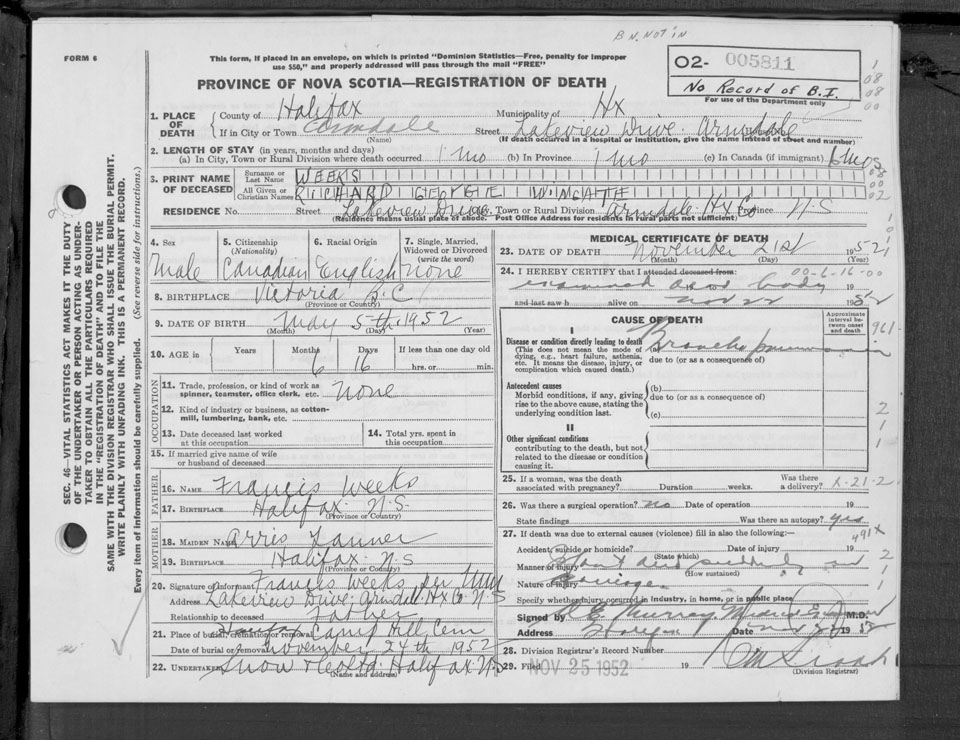 B N. NOT IN
FORM 6
This form, if placed in an envelope, on which is printed "Dominion Statistics—Free, penalty for improper
use $50," and properly addressed will pass through the mail "FREE"
O2- 005811
No Record of B.I.
For use of the Department only
1
08
08
00
PROVINCE OF NOVA SCOTIA—REGISTRATION OF DEATH
1. PLACE OF DEATH
County of Halifax Municipality of Hx
If in City or Town Armdale Street Lakeview Drive. Armdale
(Name) (If death occurred in a hospital or institution, give the name instead of street and number)
2. LENGTH OF STAY (in years, months and days)
(a) In City, Town or Rural Division where death occurred 1 mo (b) In Province 1 mo (c) In Canada (if immigrant) 6 mos
3. PRINT NAME OF DECEASED
Surname or Last Name WEEKS
All Given or Christian Names RICHARD GEORGE WINGATE
RESIDENCE No. Street Lakeview Drive City, Town or Rural Division Armdale Hx Co Province N-S
(Residence means usual place of abode. Post Office Address for residents in rural parts not sufficient)
4. Sex
Male
5. Citizenship (Nationality)
Canadian
6. Racial Origin
English
7. Single, Married, Widowed or Divorced (write the word)
none
8. BIRTHPLACE Victoria B.C
(Province or Country)
9. DATE OF BIRTH May 5th 1952
(Month) (Day) (Year)
10. AGE in Years Months Days If less than one day old
6 16 hrs. or min.
OCCUPATION
11. Trade, profession, or kind of work as spinner, teamster, office clerk, etc. none
12. Kind of industry or business, as cotton-mill, lumbering, bank, etc.
13. Date deceased last worked at this occupation
14. Total yrs. spent in this occupation
15. If married give name of wife or husband of deceased
FATHER
16. NAME Francis Weeks
17. BIRTHPLACE Halifax N-S.
(Province or Country)
MOTHER
18. MAIDEN NAME
19. BIRTHPLACE Halifax N-S
(Province or Country)
20. Signature of informant Francis Weeks per
Address Lakeview Drive. Armdale. Hx Co N-S
Relationship to deceased Father
21. Place of burial, cremation or removal Camp Hill Cem
Date of burial or removal November 24th 1952
22. UNDERTAKER Snow & Co Ltd. Halifax N-S
(Name and address)
MEDICAL CERTIFICATE OF DEATH
23. DATE OF DEATH November 21st 1952
(Month) (Day) (Year)
24. I HEREBY CERTIFY that I attended deceased from: 00-6-16-00
examined dead body
and last saw h alive on Nov 22 1952
CAUSE OF DEATH
Approximate interval between onset and death
I
Disease or condition directly leading to death
(This does not mean the mode of dying, e.g., heart failure, asthenia, etc. It means the disease, injury, or complication which caused death.)
(a) Broncho pneumonia
due to (or as a consequence of)
Antecedent causes
Morbid conditions, if any, giving rise to the above cause, stating the underlying condition last.
(b)
due to (or as a consequence of)
(c)
II
Other significant conditions
contributing to the death, but not related to the disease or condition causing it.
25. If a woman, was the death associated with pregnancy? Duration weeks. Was there a delivery?
26. Was there a surgical operation? No Date of operation 19
State findings Was there an autopsy? yes
27. If death was due to external causes (violence) fill in also the following:
491X
Accident, suicide or homicide? Date of injury 19
(State which)
Manner of injury
(How sustained)
Nature of injury carriage
Specify whether injury occurred in industry, in home, or in public place
Signed by M.D.
Address Halifax Date Nov 1952
28. Division Registrar's Record Number
29. Filed NOV 25 1952 19
(Division Registrar)
SEC. 46—VITAL STATISTICS ACT MAKES IT THE DUTY
OF THE UNDERTAKER OR PERSON ACTING AS UNDER-
TAKER TO OBTAIN ALL THE PARTICULARS REQUIRED
IN THE "REGISTRATION OF DEATH" AND TO FILE THE
SAME WITH THE DIVISION REGISTRAR WHO SHALL ISSUE THE BURIAL PERMIT.
WRITE PLAINLY WITH UNFADING INK. THIS IS A PERMANENT RECORD.
Every item of information should be carefully supplied. (See reverse side for instructions.)